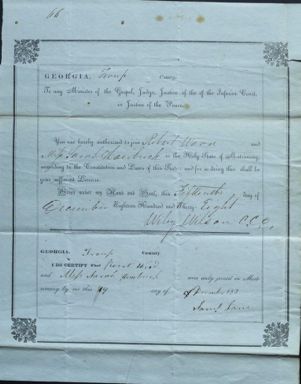 GEORGIA, Troup County.
To any Minister of the Gospel, Judge, Justice of the of the Inferior Court,
or Justice of the Peace.
You are hereby authorized to join Robert Wood and
Miss Sarah in the Holy State of Matrimony,
according to the Constitution and Laws of this State; and for so doing this shall be
your sufficient License.
Given under my Hand and Seal, this Fifteenth day of
December Eighteen Hundred and Thirty-Eight
Wiley Wilson C.C.O.
GEORGIA, Troup County
I DO CERTIFY that Wood
and Miss Sarah were duly joined in Matri-
mony by me this 19 day of December 183
Saml Lane